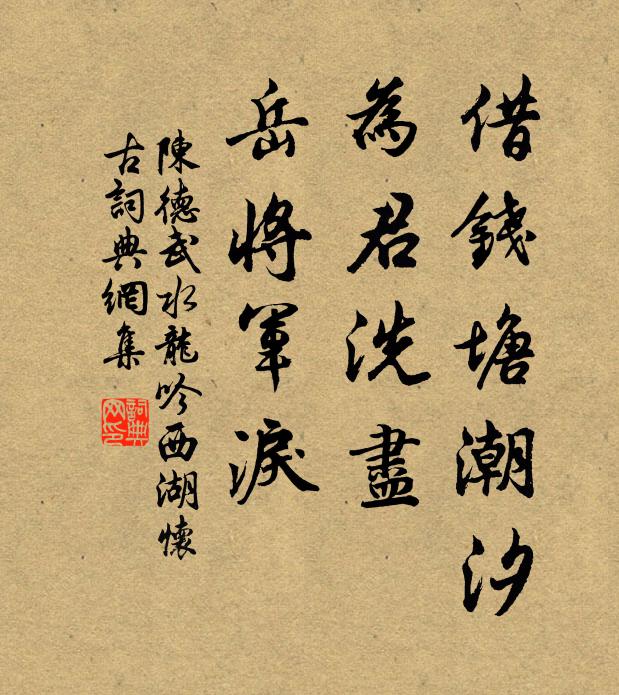 借錢塘潮汐
為君洗盡
岳將軍淚
陳德武水龍吟西湖懷
古詞典網集
詞典
网印